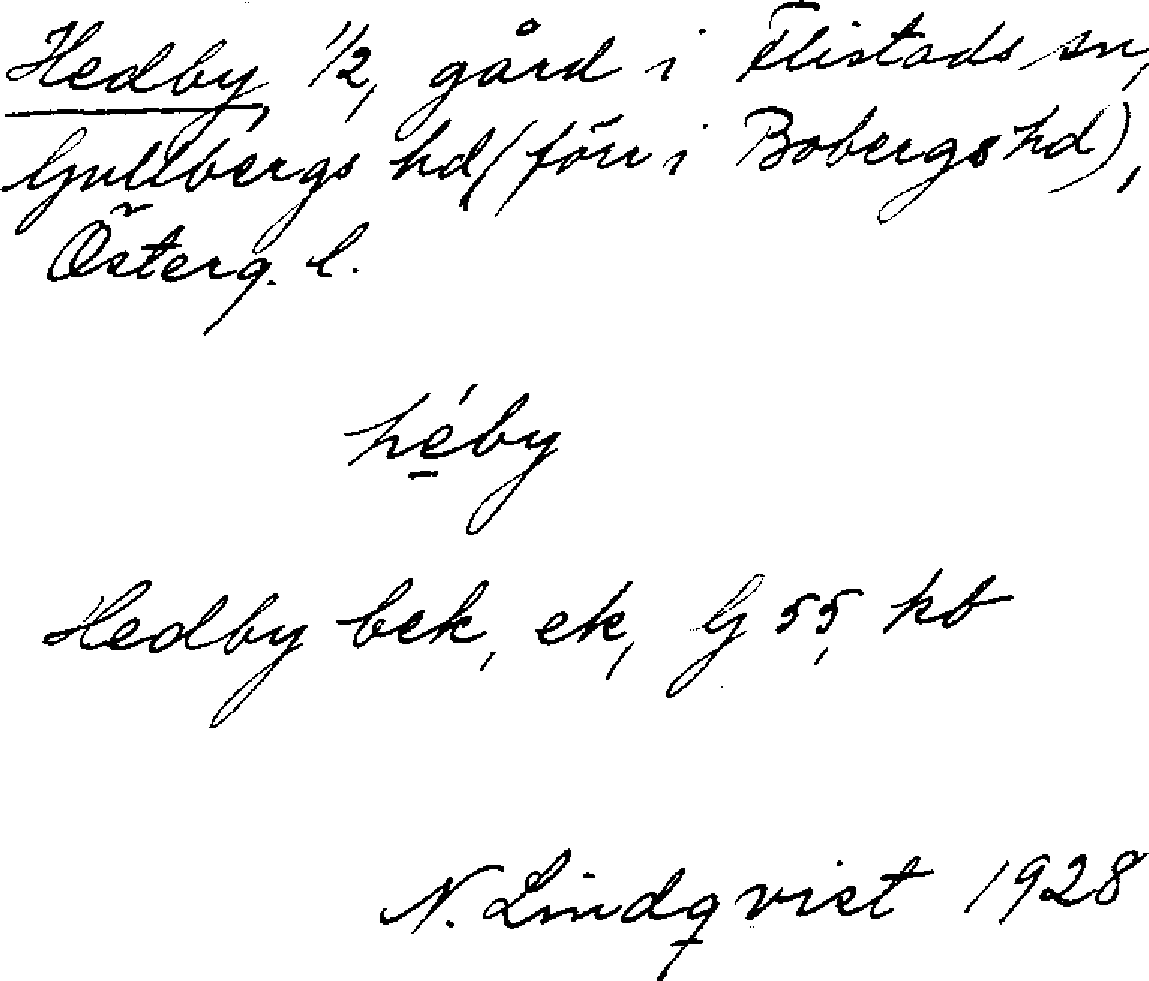 Hedby, 1/2, gård i Flistads sn,
Gullbergs hd (förr i Bobergs hd),
Österg. l.
hé̱by
Hedby bek, ek, G 55, kb
N. Lindqvist 1928